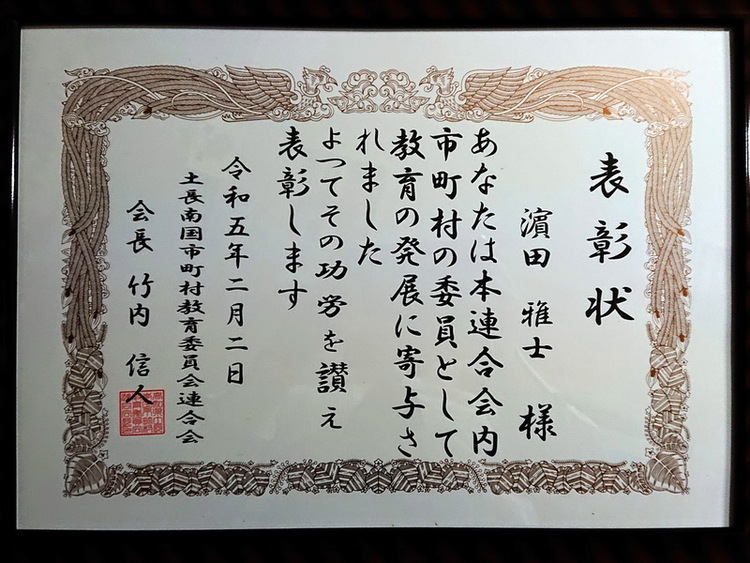 表彰状
濵田 雅士 様
あなたは本連合会内
市町村の委員として
教育の発展に寄与さ
れました
よつてその功労を讃え
表彰します
令和五年二月二日
土長南国市町村教育委員会連合会
会長 竹内 信人